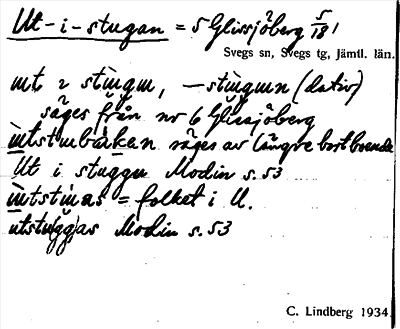 Ut-i-stugan = 5 Glissjöberg 5/18 1
Svegs sn, Svegs tg, Jämtl. län.
ut i stùgu, – stùgun (dativ)
säges från nr 6 Glissjöberg
ùtstubàkan säges av längre bort boende
Ut i stuggu Modin s. 53
ùtstùas = folket i U.
utstu(gg)as Modin s. 53
C. Lindberg 1934.